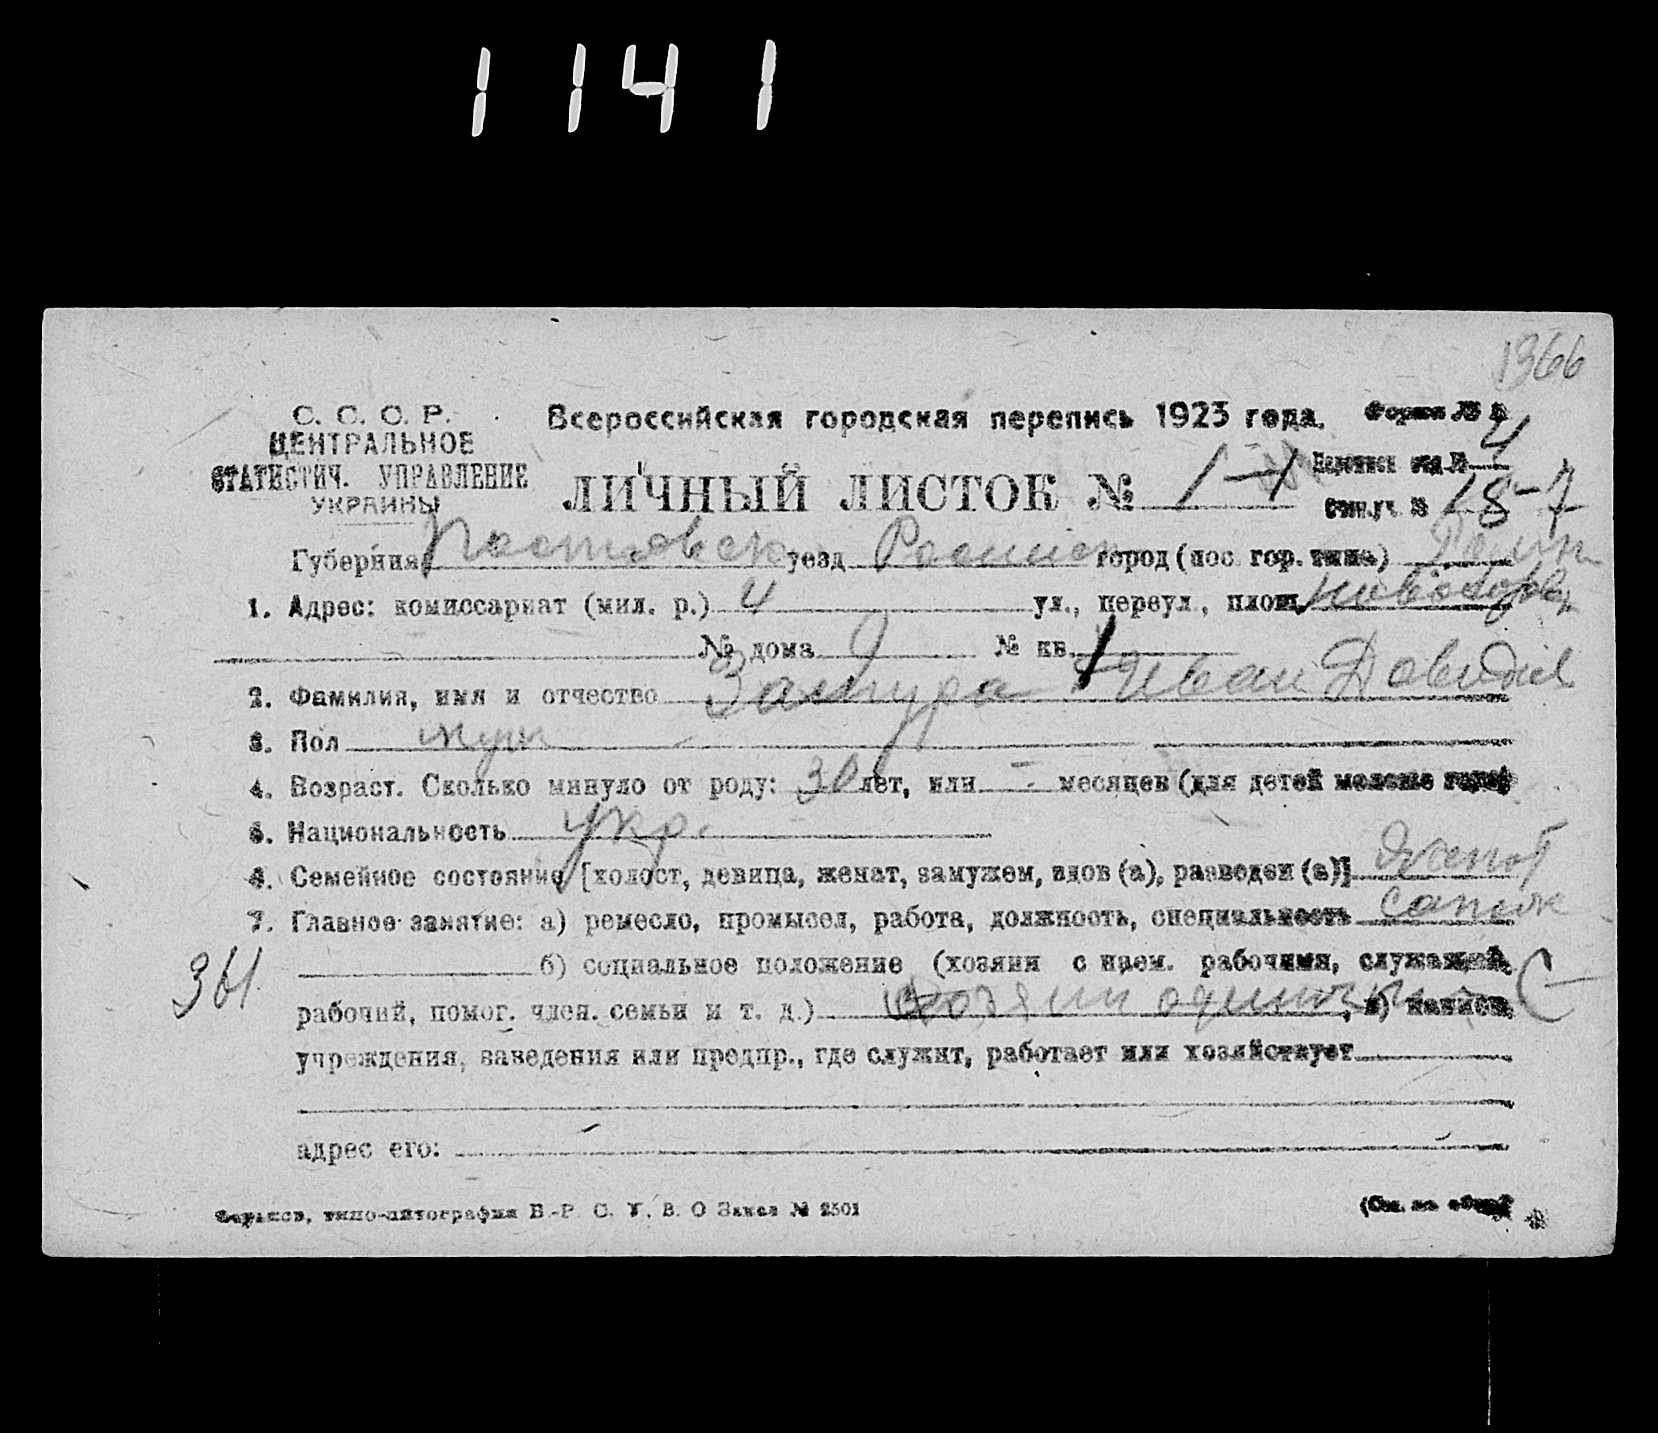 1141
1366
С. С. С. Р.
ЦЕНТРАЛЬНОЕ
СТАТИСТИЧ. УПРАВЛЕНИЕ
УКРАИНЫ
Всероссийская городская перепись 1923 года.
ЛИЧНЫЙ ЛИСТОК № 1-1
4
18-7
Губерния уезд город (пос гор. типа)
1. Адрес: комиссариат (мил. р.) 4 ул., переул., площ.
№ дома № кв. 1
2. Фамилия, имя и отчество Иван Давидов
3. Пол муж
4. Возраст. Сколько минуло от роду: 30 лет, или - месяцев (для детей моложе года)
5. Национальность укр.
6. Семейное состояние [холост, девица, женат, замужем, вдов (а), разведен (а)] женат
7. Главное занятие: а) ремесло, промысел, работа, должность, специальность сапож
361
б) социальное положение (хозяин с наем. рабочими, служащий,
рабочий, помог. член. семьи и т. д.) хозяин одиночка, в) название
учреждения, заведения или предпр., где служит, работает или хозяйствует
адрес его:
Харьков, типо-литография В.-Р. С. У. В. О Заказ № 2501